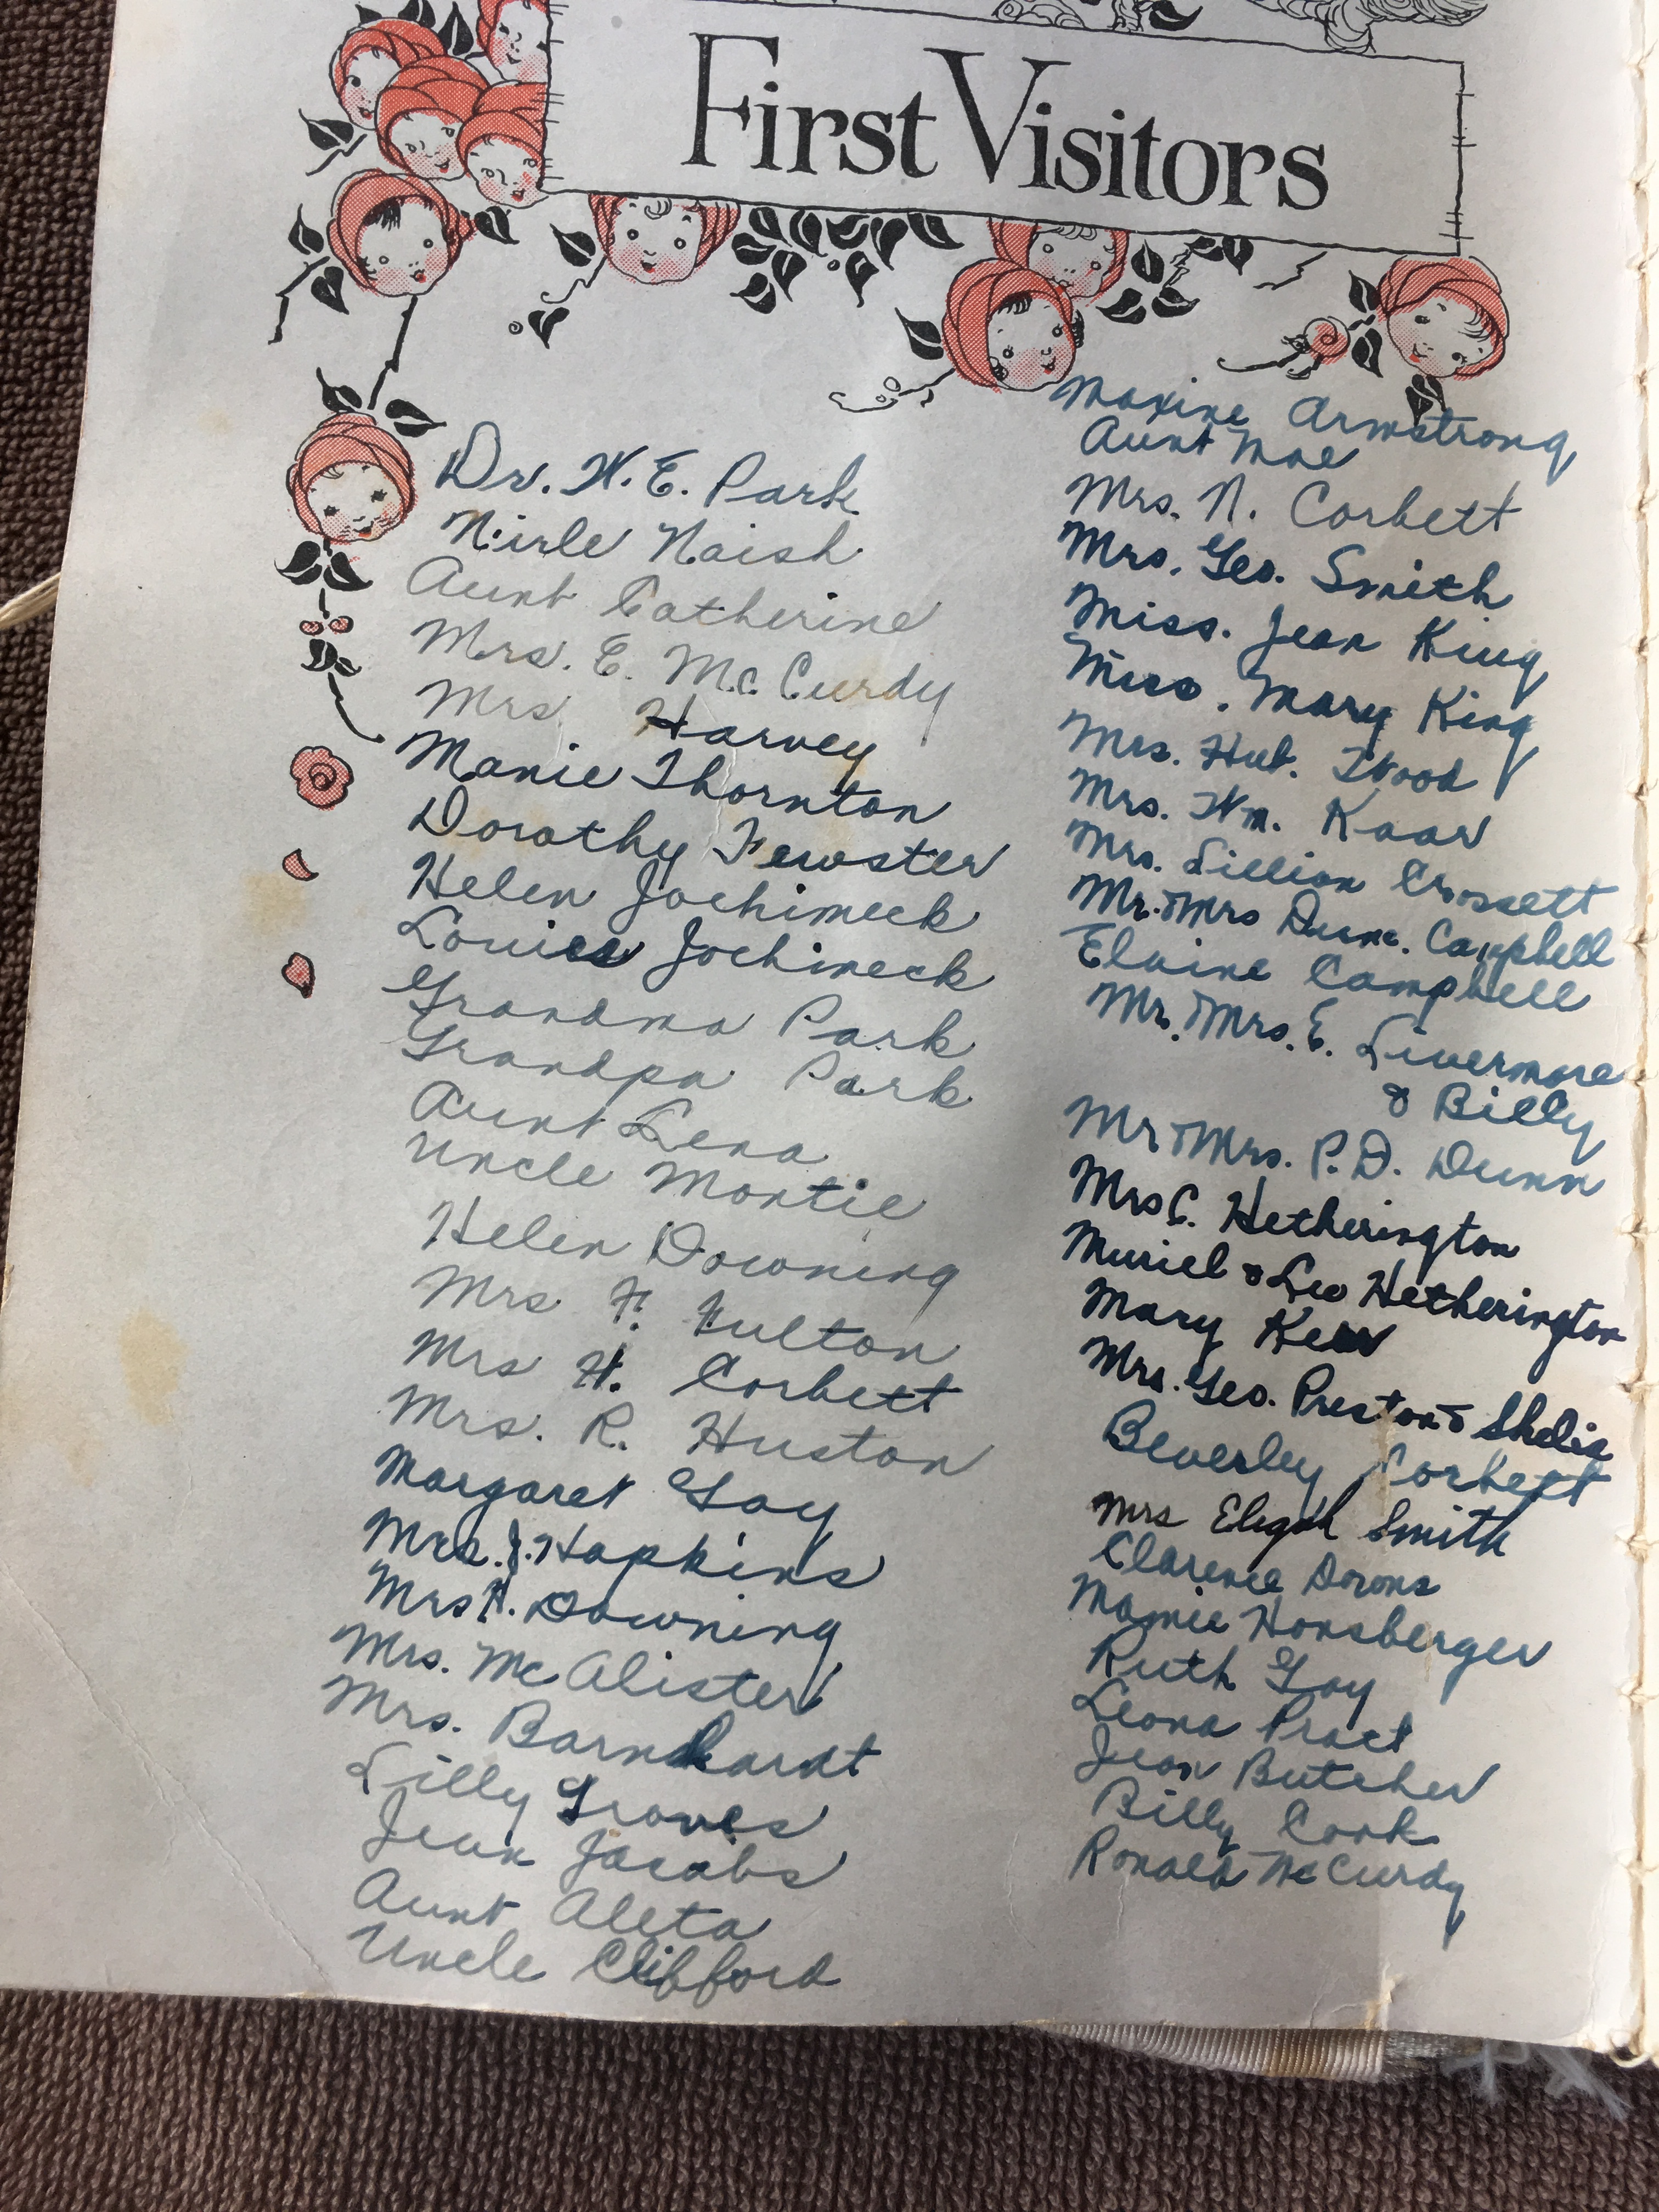 First Visitors
Dr. W. E. Park
Nirle Naish
Aunt Catherine
Mrs. E. McCurdy
Mrs. Harvey
Manie Thornton
Dorothy Fewster
Helen Jochimeck
Louise Jochimeck
Grandma Park
Grandpa Park
Aunt Lena
Uncle Montie
Helen Downing
Mrs F. Fulton
Mrs H. Corbett
Mrs. R. Huston
Margaret Gay
Mrs. J. Hopkins
Mrs H. Downing
Mrs. McAlister
Mrs. Barnhardt
Lilly Groves
Jean Jacobs
Aunt Aleta
Uncle Clifford
Maxine Armstrong
Aunt Mae
Mrs. N. Corbett
Mrs. Geo. Smith
Miss. Jean King
Miss. Mary King
Mrs. Hub. Wood
Mrs. Wm. Kaar
Mrs. Lillian Crossett
Mr. & Mrs Dunc. Campbell
Elaine Campbell
Mr. & Mrs. E. Livermore
& Billy
Mr & Mrs. P. D. Dunn
Mrs C. Hetherington
Muriel & Leo Hetherington
Mary Kerr
Mrs. Geo. Preston & Shelia
Beverley Corbett
Mrs Eligah Smith
Clarence
Mamie Honsberger
Ruth Gay
Leona Pract
Jean Butcher
Billy Cook
Ronald McCurdy